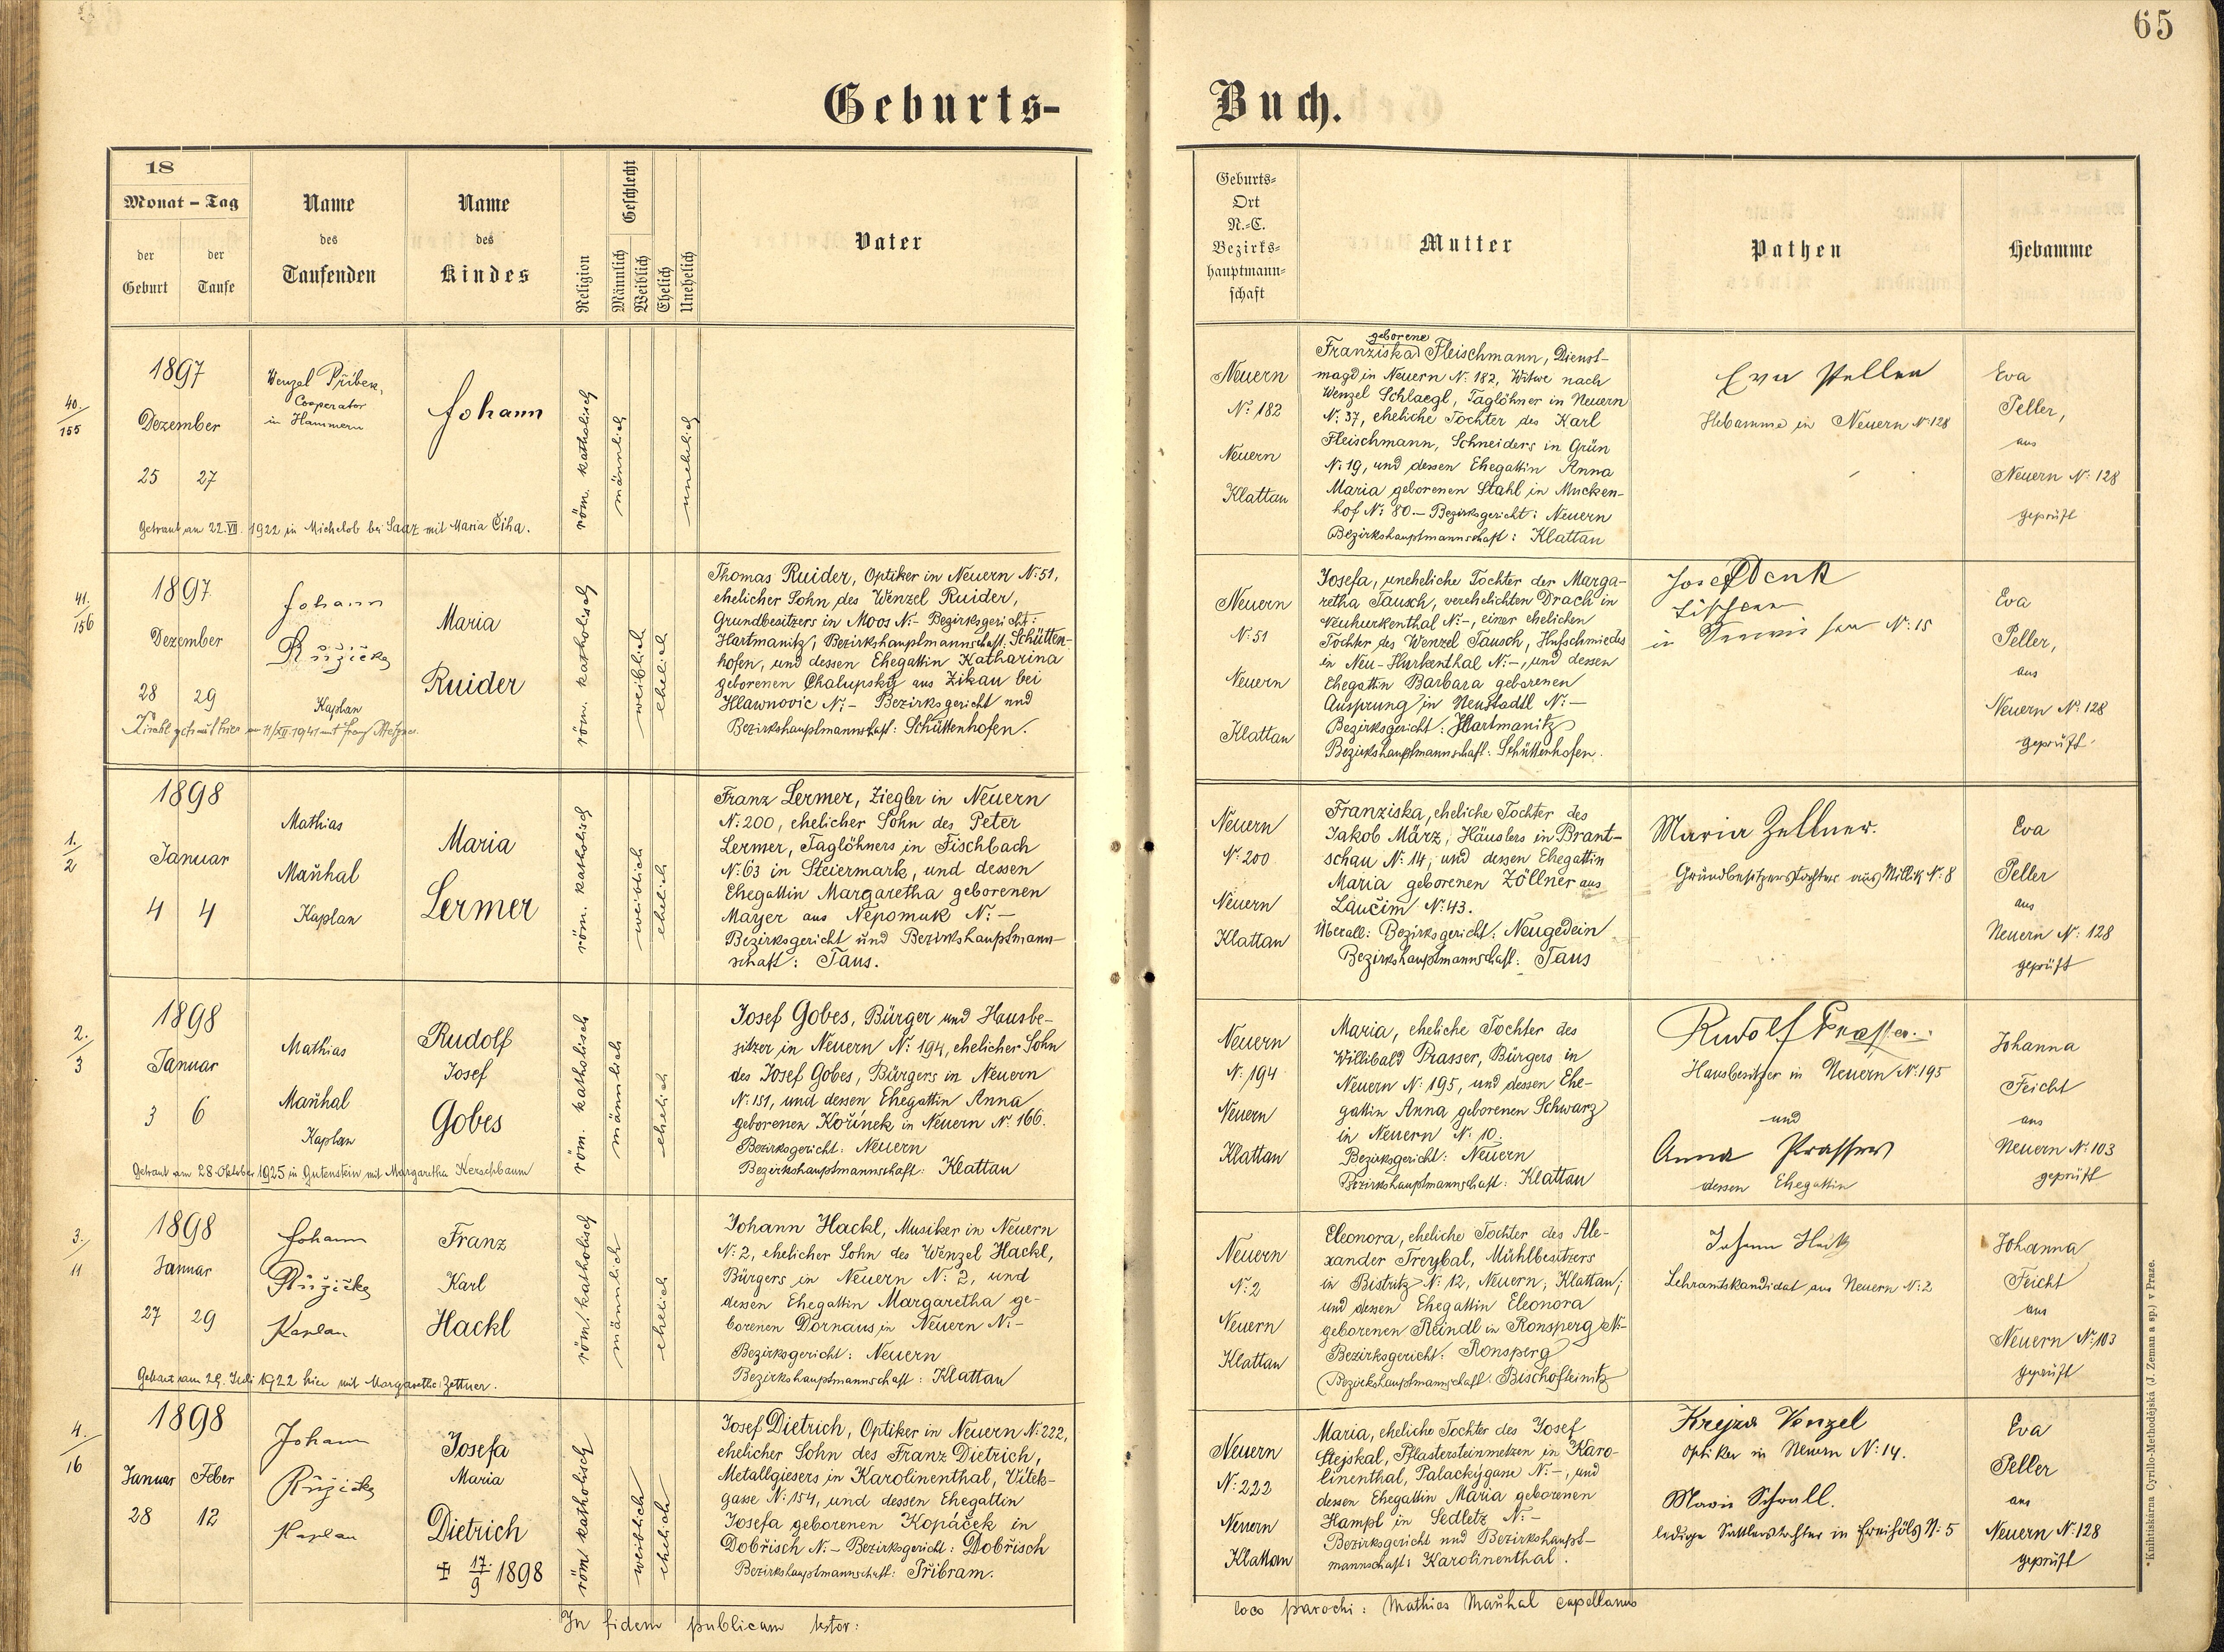 65
Geburts-
Buch.
18
Monat - Tag
der Geburt
der Taufe
Name
des
Taufenden
Name
des
Kindes
Religion
Geschlecht
Männlich
Weiblich
Ehelich
Unehelich
Vater
Geburts-
Ort
N.-C.
Bezirks-
hauptmann-
schaft
Mutter
Pathen
Hebamme
40.
155
1897
Dezember
25 27
Wenzel Přibek,
Cooperator
in Hammern
Johann
röm. katholisch
männlich
unehelich
Getraut am 22.VII. 1922 in Michelob bei Saaz mit Maria Čiha.
Neuern
N: 182
Neuern
Klattau
geborene
Franziska Fleischmann, Dienst-
magd in Neuern N: 182, Witwe nach
Wenzel Schlaegl, Taglöhner in Neuern
N: 37, eheliche Tochter des Karl
Fleischmann, Schneiders in Grün
N: 19, und dessen Ehegattin Anna
Maria geborenen Stahl in Mucken-
hof N: 80.- Bezirksgericht: Neuern
Bezirkshauptmannschaft: Klattau
Eva Peller
Hebamme in Neuern N: 128
Eva
Peller,
aus
Neuern N: 128
geprüft
41.
156
1897
Dezember
28 29
Johann
Růžička
Kaplan
Maria
Ruider
röm. katholisch
weiblich
ehelich
getraut hier am 11/XII.1941 mit Franz
Thomas Ruider, Optiker in Neuern N: 51,
ehelicher Sohn des Wenzel Ruider,
Grundbesitzers in Moos N:- Bezirksgericht:
Hartmanitz, Bezirkshauptmannschaft: Schütten-
hofen, und dessen Ehegattin Katharina
geborenen Chalupský aus Zikau bei
Hlawnovic N:- Bezirksgericht und
Bezirkshauptmannschaft: Schüttenhofen.
Neuern
N: 51
Neuern
Klattau
Josefa, uneheliche Tochter der Marga-
retha Tausch, verehelichten Drach in
Neuhurkenthal N:-, einer ehelichen
Tochter des Wenzel Tausch, Hufschmiedes
in Neu-Hurkenthal N:-, und dessen
Ehegattin Barbara geborenen
Ausprung in Neustadtl N:-
Bezirksgericht: Hartmanitz
Bezirkshauptmannschaft: Schüttenhofen.
Josef Denk
in N: 15
Eva
Peller,
aus
Neuern N: 128
geprüft
1.
2
1898
Januar
4 4
Mathias
Maňhal
Kaplan
Maria
Lermer
röm. katholisch
weiblich
ehelich
Franz Lermer, Ziegler in Neuern
N: 200, ehelicher Sohn des Peter
Lermer, Taglöhners in Fischbach
N: 63 in Steiermark, und dessen
Ehegattin Margaretha geborenen
Mayer aus Nepomuk N:-
Bezirksgericht und Bezirkshauptmann-
schaft: Taus.
Neuern
N: 200
Neuern
Klattau
Franziska, eheliche Tochter des
Jakob März, Häuslers in Brant-
schau N: 14, und dessen Ehegattin
Maria geborenen Zöllner aus
Laučim N: 43.
Überall: Bezirksgericht: Neugedein
Bezirkshauptmannschaft: Taus
Maria Zellner.
Grundbesitzerstochter aus Millik N: 8
Eva
Peller
aus
Neuern N: 128
geprüft
2.
3
1898
Januar
3 6
Mathias
Maňhal
Kaplan
Rudolf
Josef
Gobes
röm. katholisch
männlich
ehelich
Getraut am 28. Oktober 1925 in Gutenstein mit Margaretha Kerschbaum
Josef Gobes, Bürger und Hausbe-
sitzer in Neuern N: 194, ehelicher Sohn
des Josef Gobes, Bürgers in Neuern
N: 151, und dessen Ehegattin Anna
geborenen Kořínek in Neuern N: 166.
Bezirksgericht: Neuern
Bezirkshauptmannschaft: Klattau
Neuern
N: 194
Neuern
Klattau
Maria, eheliche Tochter des
Willibald Prasser, Bürgers in
Neuern N: 195, und dessen Ehe-
gattin Anna geborenen Schwarz
in Neuern N: 10.
Bezirksgericht: Neuern
Bezirkshauptmannschaft: Klattau
Rudolf Prasser
Hausbesitzer in Neuern N: 195
und
Anna Prasser
dessen Ehegattin
Johanna
Feicht
aus
Neuern N: 103
geprüft
3.
11
1898
Januar
27 29
Johann
Růžička
Kaplan
Franz
Karl
Hackl
röm. katholisch
männlich
ehelich
Getraut am 29. Juli 1922 hier mit Margarethe Zettner.
Johann Hackl, Musiker in Neuern
N: 2, ehelicher Sohn des Wenzel Hackl,
Bürgers in Neuern N: 2, und
dessen Ehegattin Margaretha ge-
borenen Dornaus in Neuern N:-
Bezirksgericht: Neuern
Bezirkshauptmannschaft: Klattau
Neuern
N: 2
Neuern
Klattau
Eleonora, eheliche Tochter des Ale-
xander Treybal, Mühlbesitzers
in Bistritz N: 12, Neuern, Klattau;
und dessen Ehegattin Eleonora
geborenen Reindl in Ronsperg N:-
Bezirksgericht: Ronsperg
Bezirkshauptmannschaft: Bischofteinitz
Johann
Lehramtskandidat aus Neuern N: 2
Johanna
Feicht
aus
Neuern N: 103
geprüft
4.
16
1898
Januar Feber
28 12
Johann
Růžička
Kaplan
Josefa
Maria
Dietrich
✠ 17./9 1898
röm. katholisch
weiblich
ehelich
Josef Dietrich, Optiker in Neuern N: 222,
ehelicher Sohn des Franz Dietrich,
Metallgiesers in Karolinenthal, Vitek-
gasse N: 154, und dessen Ehegattin
Josefa geborenen Kopáček in
Dobřisch N:- Bezirksgericht: Dobřisch
Bezirkshauptmannschaft: Přibram.
Neuern
N: 222
Neuern
Klattau
Maria, eheliche Tochter des Josef
Stejskal, Pflastersteinmetzen in Karo-
linenthal, Palackýgasse N:-, und
dessen Ehegattin Maria geborenen
Hampl in Sedletz N:-
Bezirksgericht und Bezirkshaupt-
mannschaft: Karolinenthal.
Krejza Wenzel
Optiker in Neuern N: 14.
Marie Schrall.
ledige Sattlerstochter in Freihöls N: 5
Eva
Peller
aus
Neuern N: 128
geprüft
In fidem publicam testor:
loco parochi: Mathias Maňhal capellanus
* Knihtiskárna Cyrillo-Methodějská (J. Zeman a sp.) v Praze.